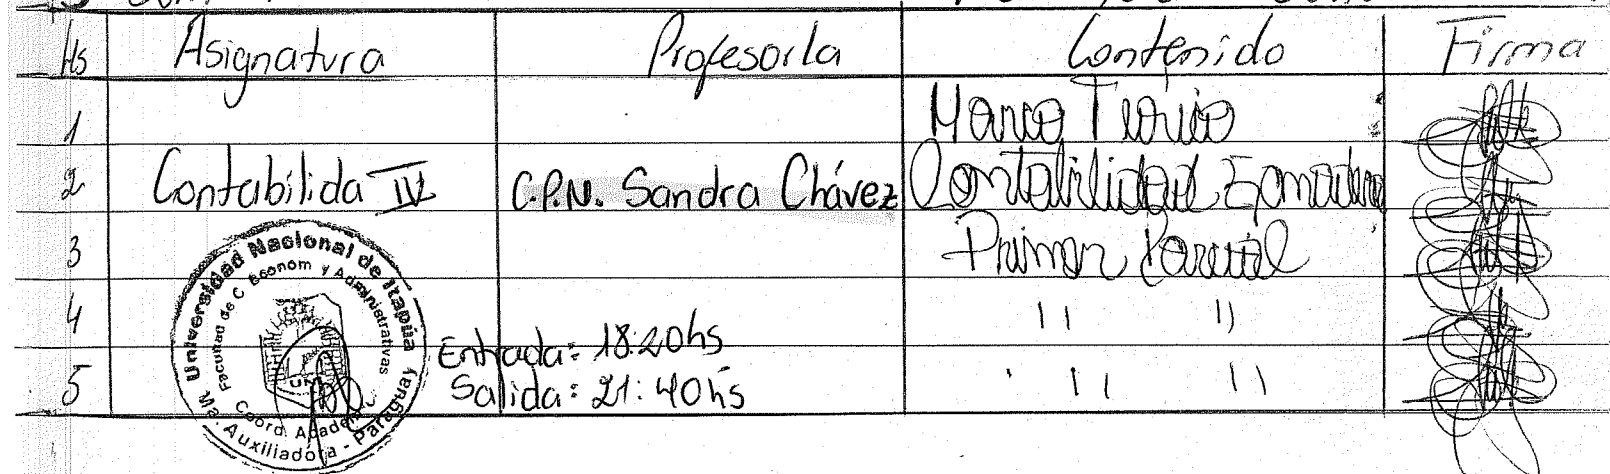 Hs Asignatura Profesor/a Contenido Firma
1 Marco Teórico
2 Contabilida IV C.P.N. Sandra Chávez Contabilidad
3 Primer Parcial
4 " "
5 " "
Entrada: 18:20hs
Salida: 21:40hs
Universidad Nacional de Itapúa
Facultad de C. Econom y Administrativas
UNI
Coord. Academ.
Ma. Auxiliadora - Paraguay